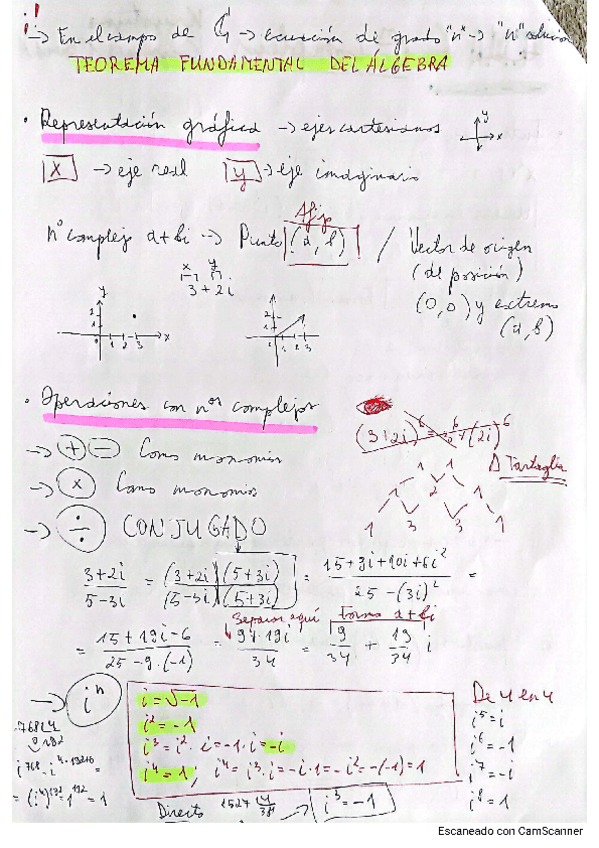 ! → En el campo de ℂ → ecuación de grado "n" → "n" solucion
TEOREMA FUNDAMENTAL DEL ÁLGEBRA
• Representación gráfica → ejes cartesianos
y
x
x → eje real y → eje imaginario
Afijo
nº complejo a+bi → Punto (a, b) / Vector de origen
(de posición)
(0,0) y extremo
(a,b)
x y
3 + 2i
y
2
1
1 2 3 x
2
1
1 2 3
• Operaciones con nºs complejos
(3+2i)⁶ = 3⁶ + (2i)⁶
→ + − Como monomios
→ × Como monomios
Δ Tartaglia
1 1
1 2 1
1 3 3 1
→ ÷ CONJUGADO
3+2i / 5-3i = (3+2i)(5+3i) / (5-3i)(5+3i) = 15+9i+10i+6i² / 25-(3i)² =
Separar aquí Forma a+bi
= 15+19i-6 / 25-9·(-1) = 9+19i / 34 = 9/34 + 19/34 i
→ iⁿ
i = √-1
i² = -1
i³ = i² · i = -1 · i = -i
i⁴ = 1; i⁴ = i³ · i = -i · i = -i² = -(-1) = 1
De 4 en 4
i⁵ = i
i⁶ = -1
i⁷ = -i
i⁸ = 1
768 |4
0 192
= (i⁴)¹⁹² = 1¹⁹² = 1
Directo
1527 |4
→ i³ = -1
Escaneado con CamScanner